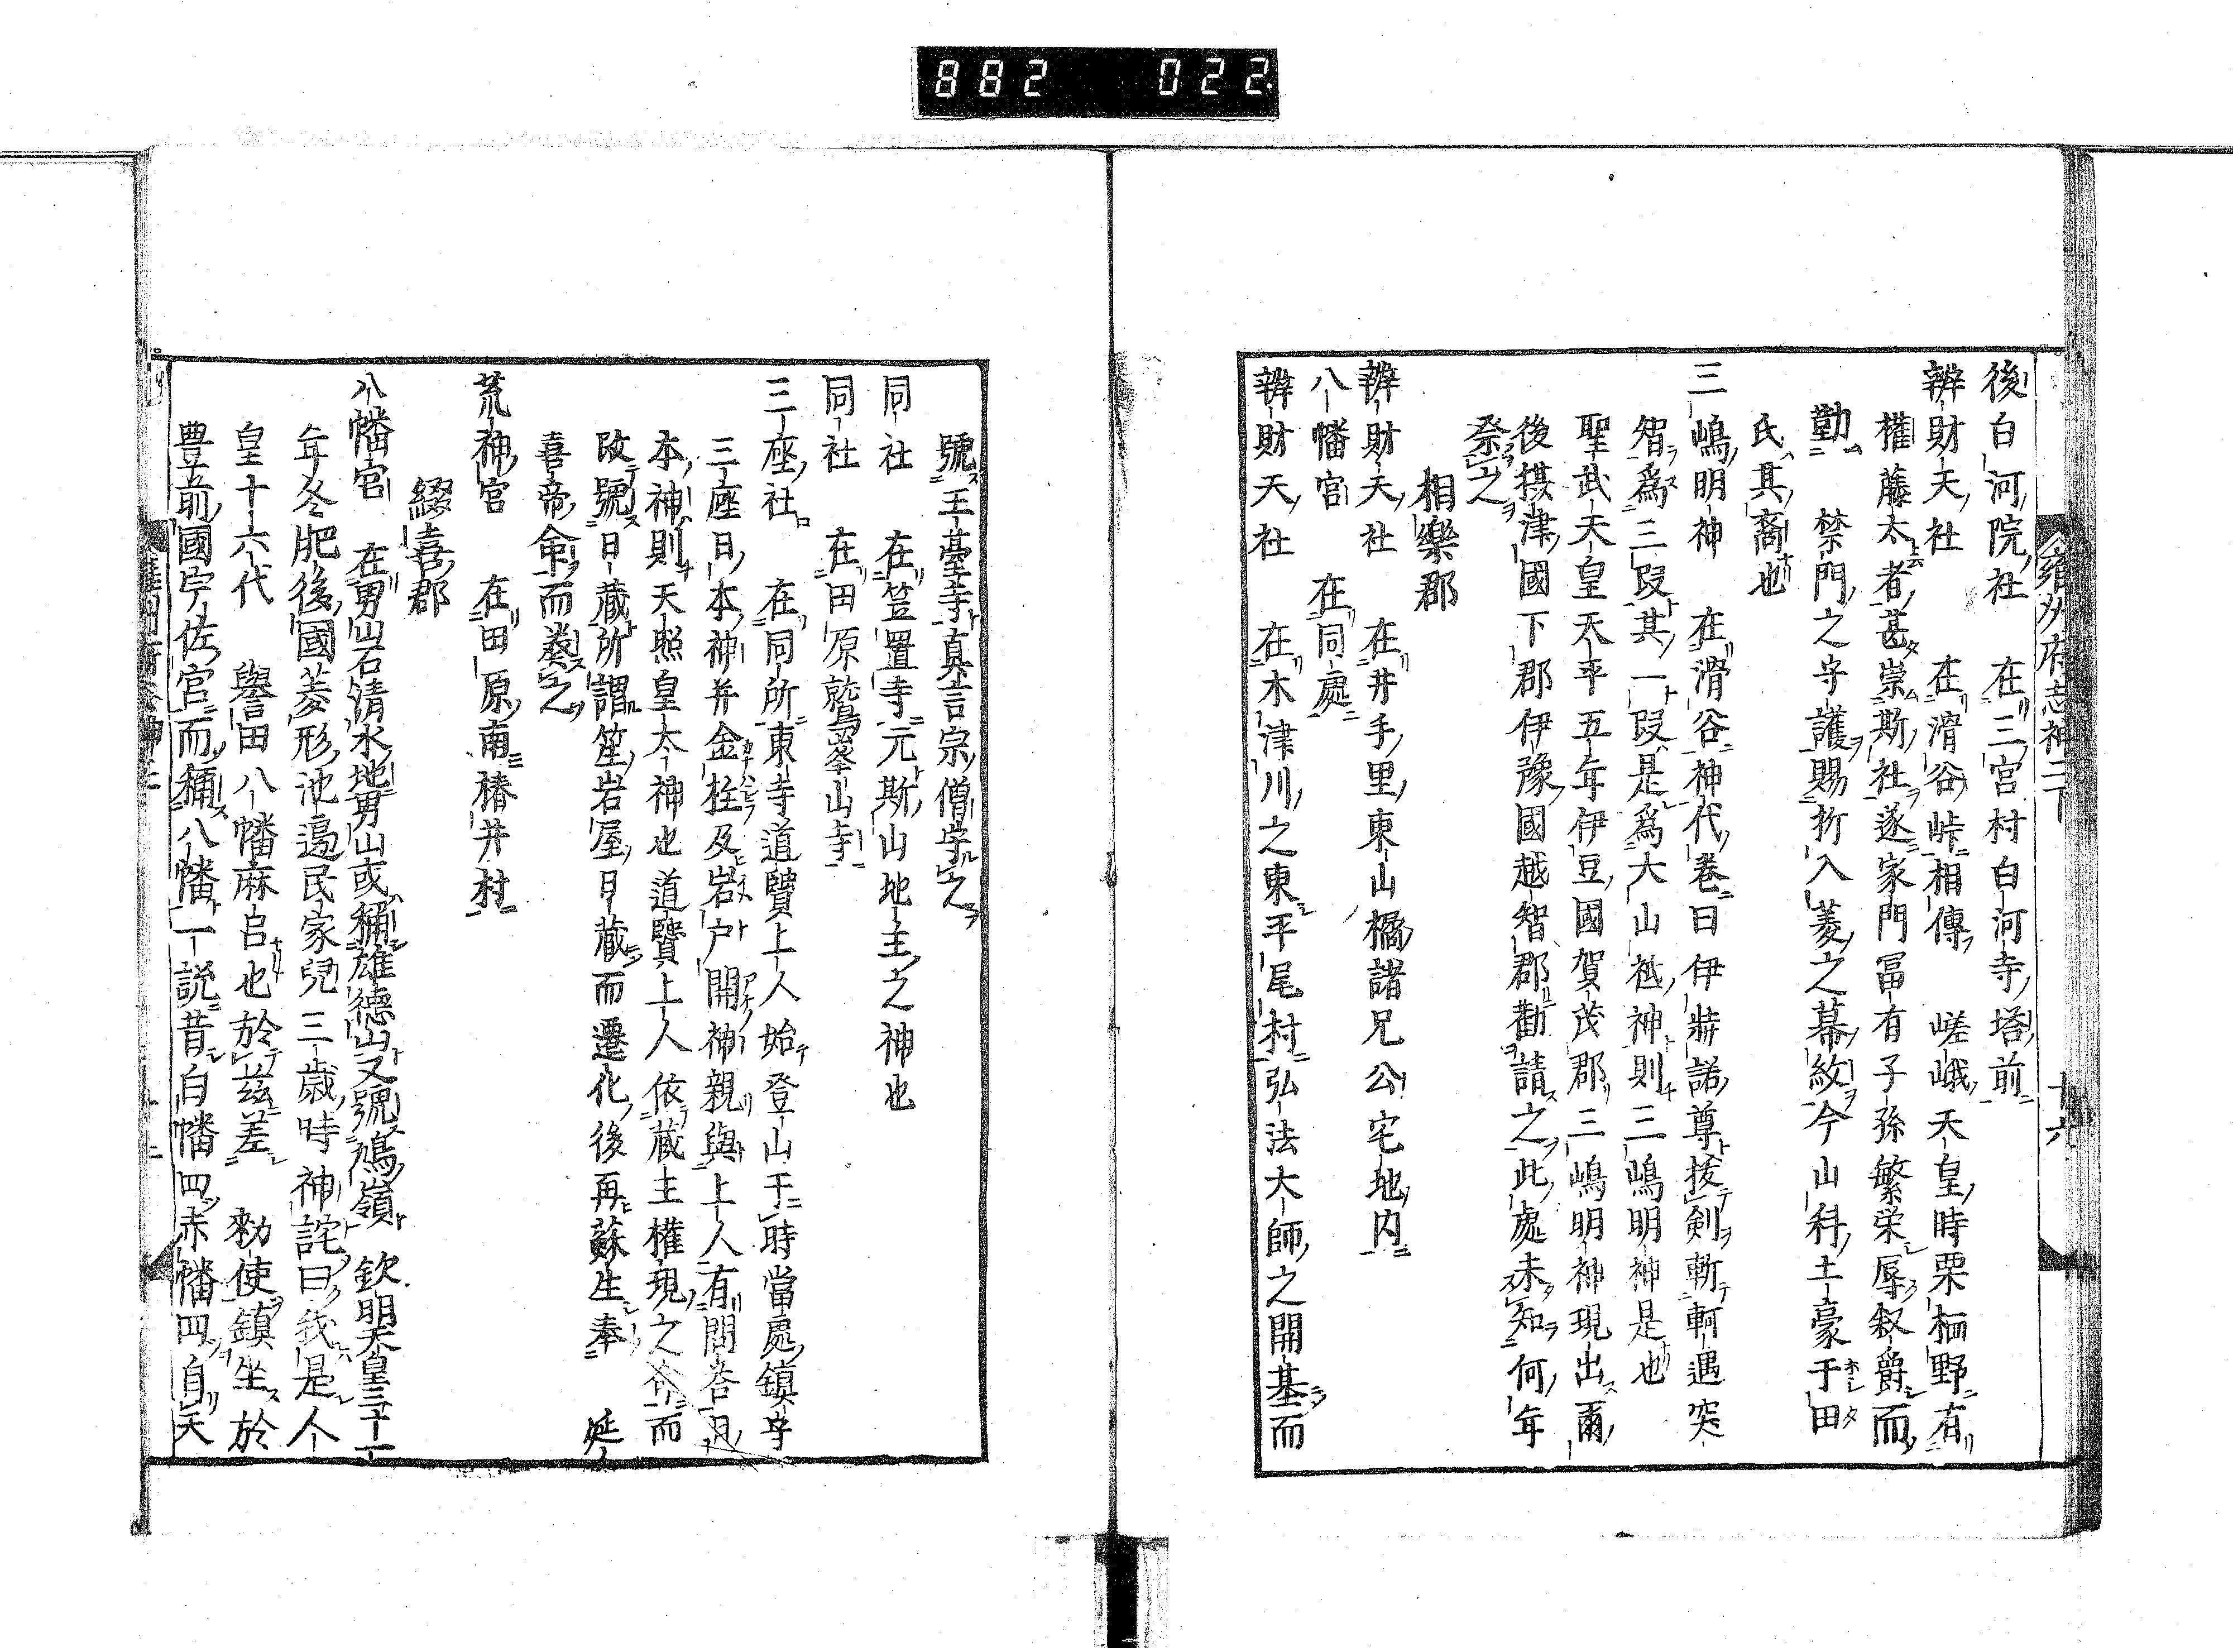 882 022
雍州府志神二下 十六
後白河院社 在三宮村白河寺塔前
辨財天社 在滑谷峠相傳 嵯峨天皇時栗栖野有
權藤太者甚崇斯社遂家門冨有子孫繁栄辱叙爵而
勤 禁門之守護賜折入菱之幕紋今山科土豪于田
氏其裔也
三嶋明神 在滑谷神代巻曰伊弉諾尊拔剣斬軻遇突
智爲三段其一段是爲大山祇神則三嶋明神是也
聖武天皇天平五年伊豆國賀茂郡三嶋明神現出爾
後摂津國下郡伊豫國越智郡勸請之此處未知何年
祭之
相樂郡
辨財天社 在井手里東山橘諸兄公宅地内
八幡宮 在同處
辨財天社 在木津川之東平尾村弘法大師之開基而
號王臺寺真言宗僧守之
同社 在笠置寺元斯山地主之神也
同社 在田原鷲峯山寺
三座社 在同所東寺道賢上人始登山于時當處鎮守
三座日本神并金柱及岩戸開神親與上人有問答日
本神則天照皇太神也道賢上人依蔵主權現之 而
改號日蔵所謂笙岩屋日蔵而遷化後再蘇生奉 延
喜帝命而 之
荒神宮 在田原南椿井村
綴喜郡
八幡宮 在男山石清水地男山或稱雄德山又號鳩嶺 欽明天皇三十一
年冬肥後國菱形池邉民家兒三歳時神託曰我是人
皇十六代 譽田八幡麻呂也於茲差 勅使鎮坐於
豊前國宇佐宮而稱八幡一説昔白幡四赤幡四自天